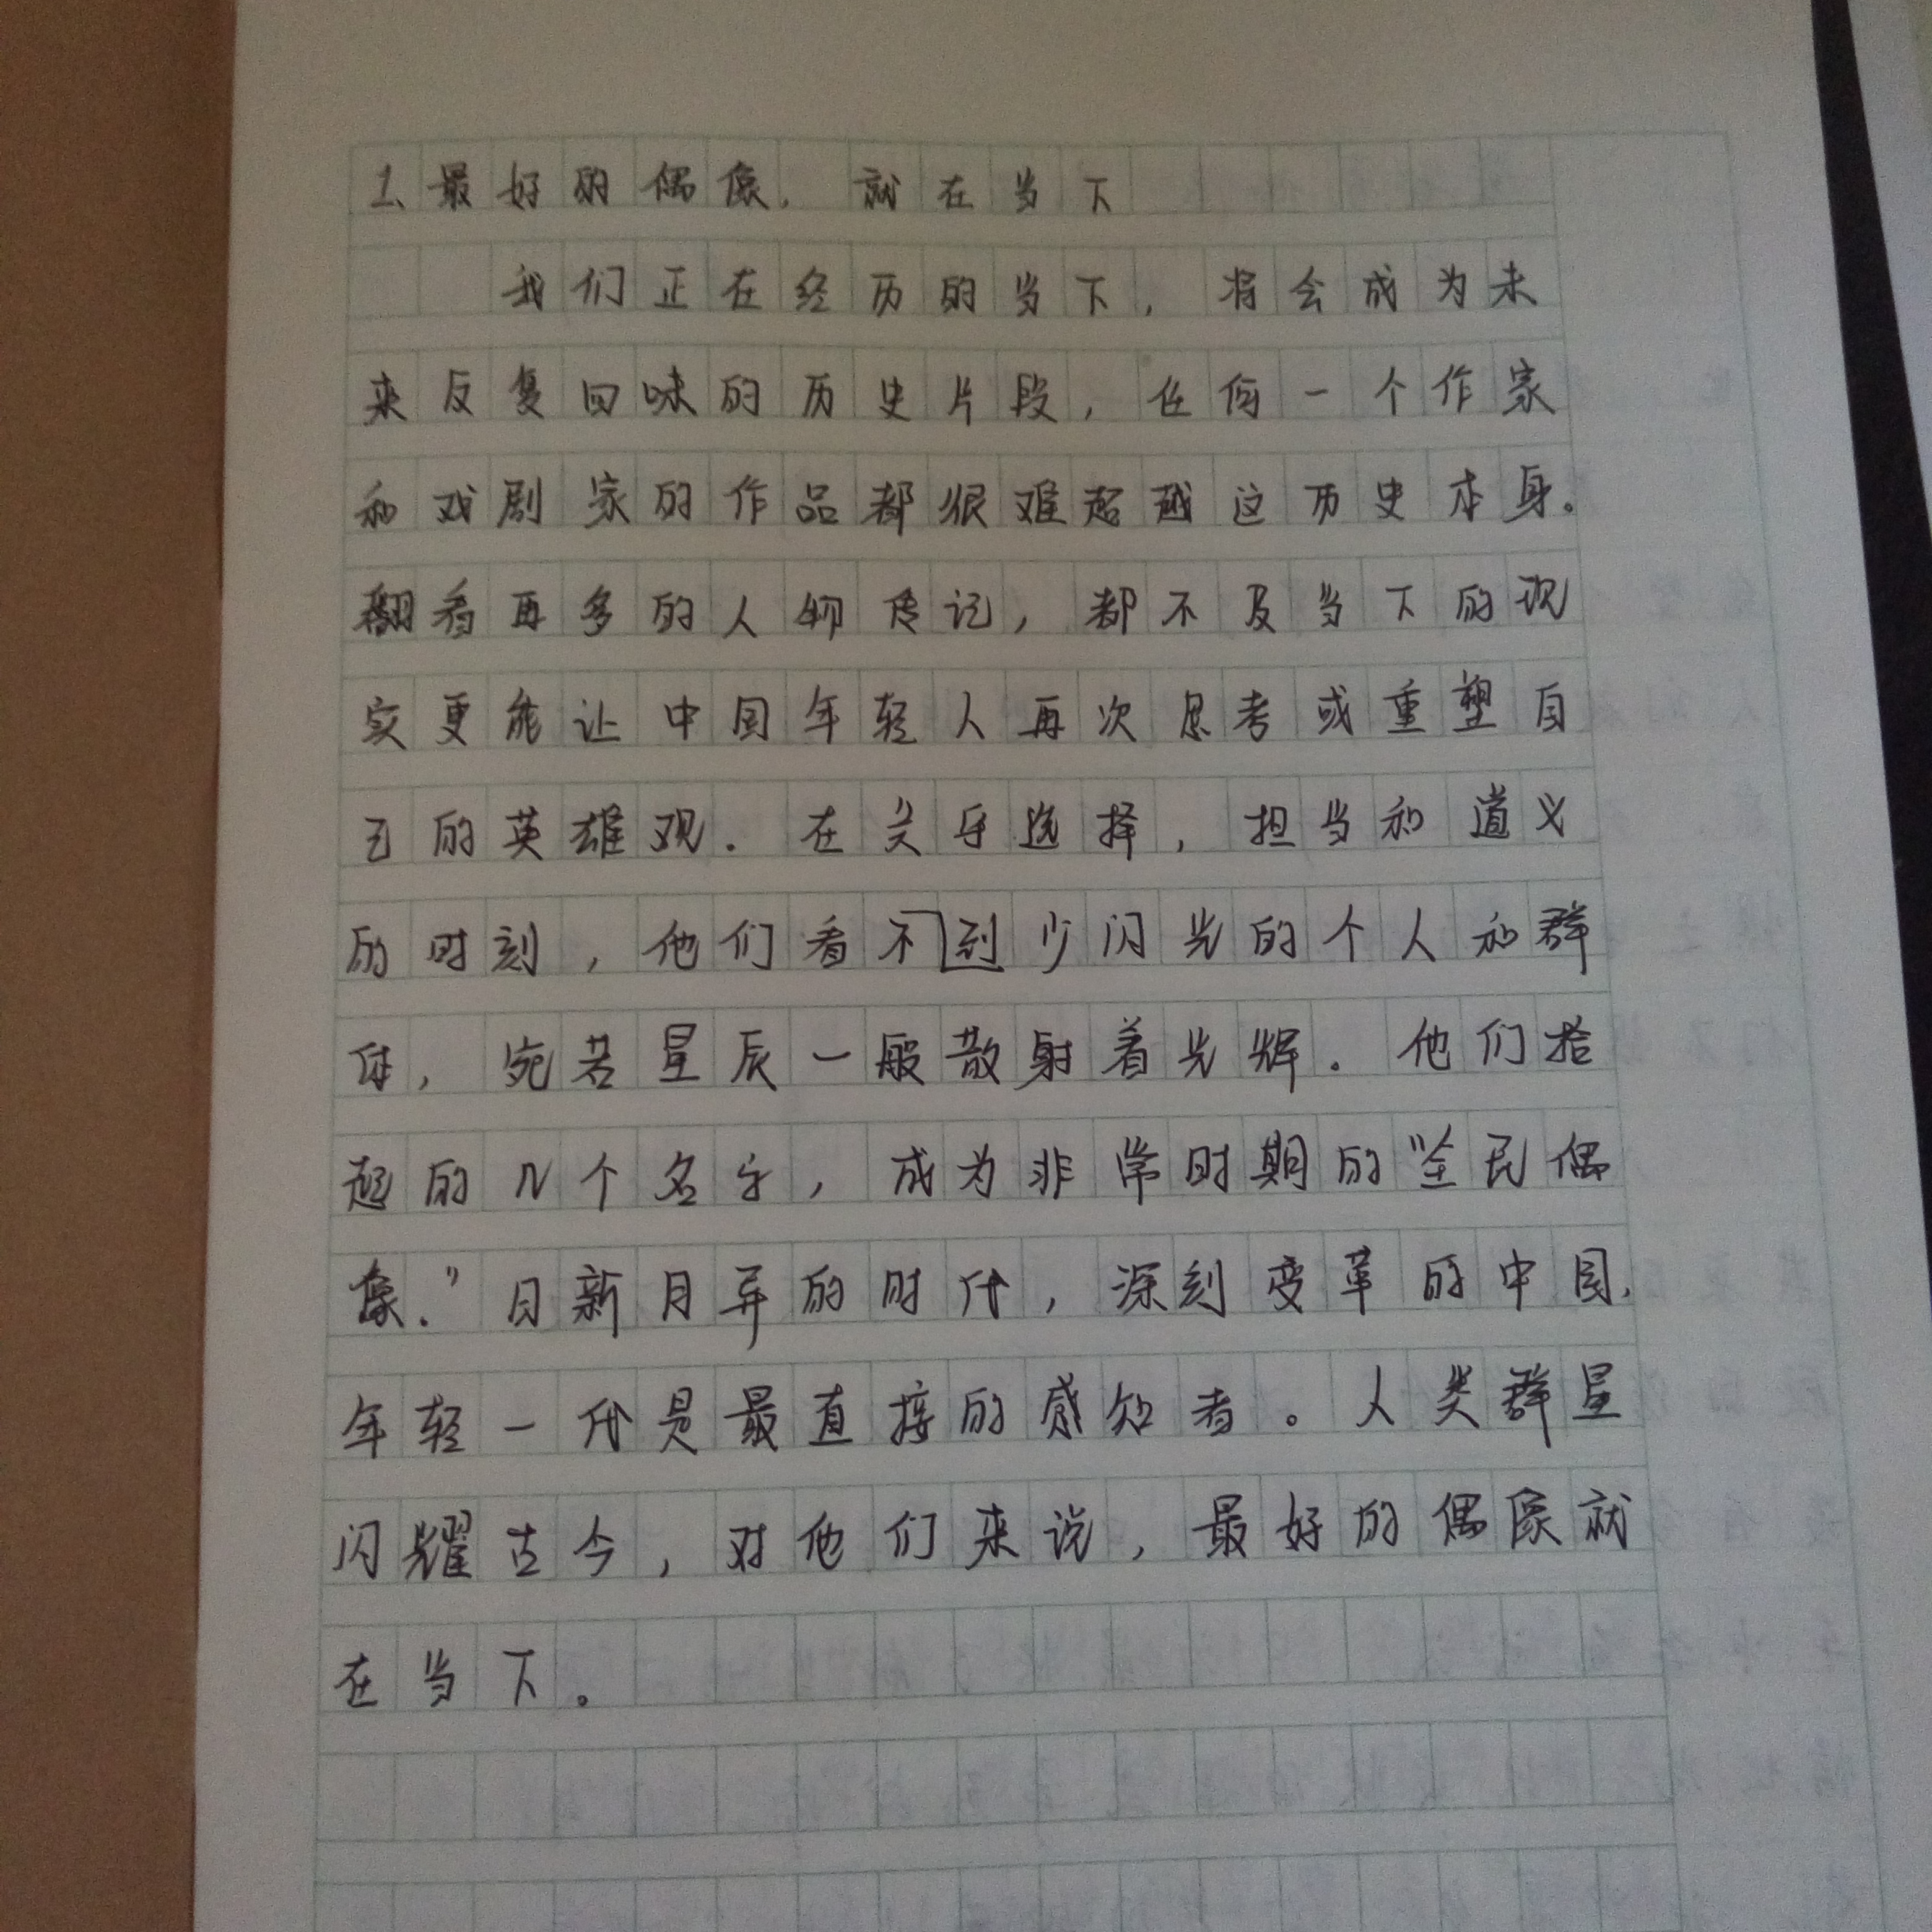 1、最好的偶像，就在当下
我们正在经历的当下，将会成为未
来反复回味的历史片段，任何一个作家
和戏剧家的作品都很难超越这历史本身。
翻看再多的人物传记，都不及当下的现
实更能让中国年轻人再次思考或重塑自
己的英雄观．在关乎选择，担当和道义
的时刻，他们看不到少闪光的个人和群
体，宛若星辰一般散射着光辉．他们拾
起的几个名字，成为非常时期的“全民偶
像．”日新月异的时代，深刻变革的中国，
年轻一代是最直接的感知者。人类群星
闪耀古今，对他们来说，最好的偶像就
在当下。